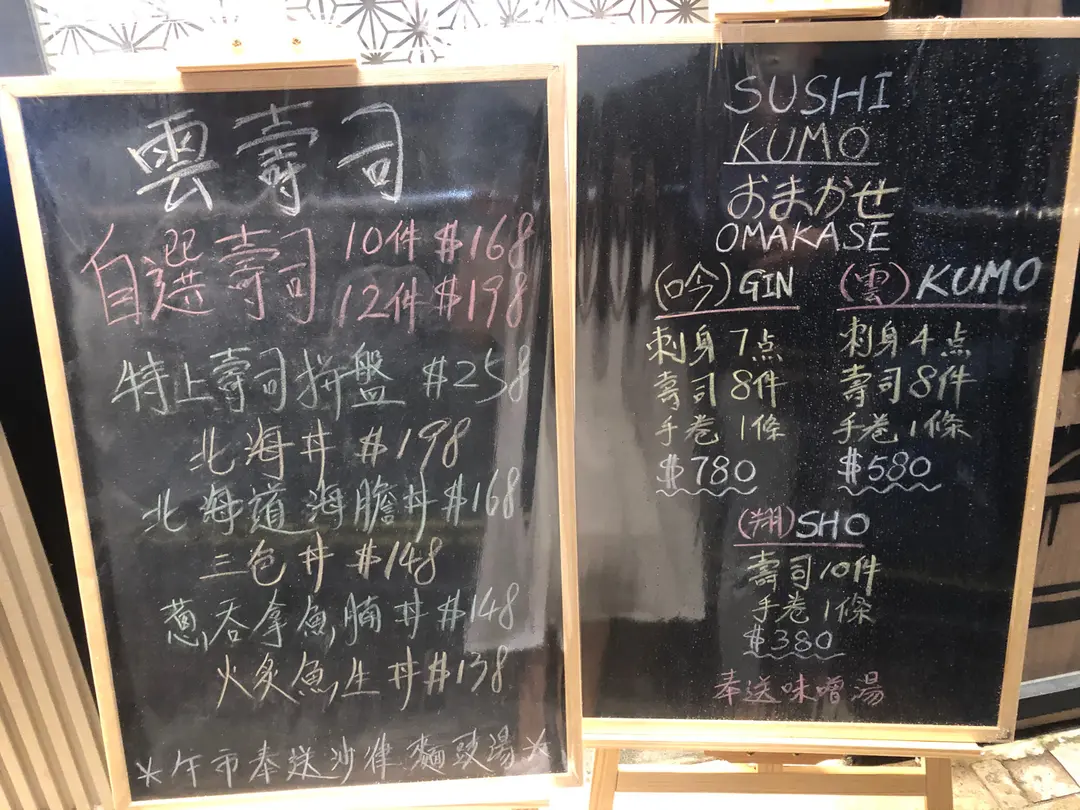 雲壽司
自選壽司 10件 $168
12件 $198
特上壽司拼盤 $258
北海丼 $198
北海道海膽丼 $168
三色丼 $148
蔥,吞拿魚,腩丼 $148
火炙魚,生丼 $138
*午市奉送沙律麵豉湯*
SUSHI
KUMO
おまかせ
OMAKASE
(吟) GIN
刺身 7点
壽司 8件
手卷 1條
$780
(雲) KUMO
刺身 4点
壽司 8件
手卷 1條
$580
(翔) SHO
壽司 10件
手卷 1條
$380
奉送味噌湯